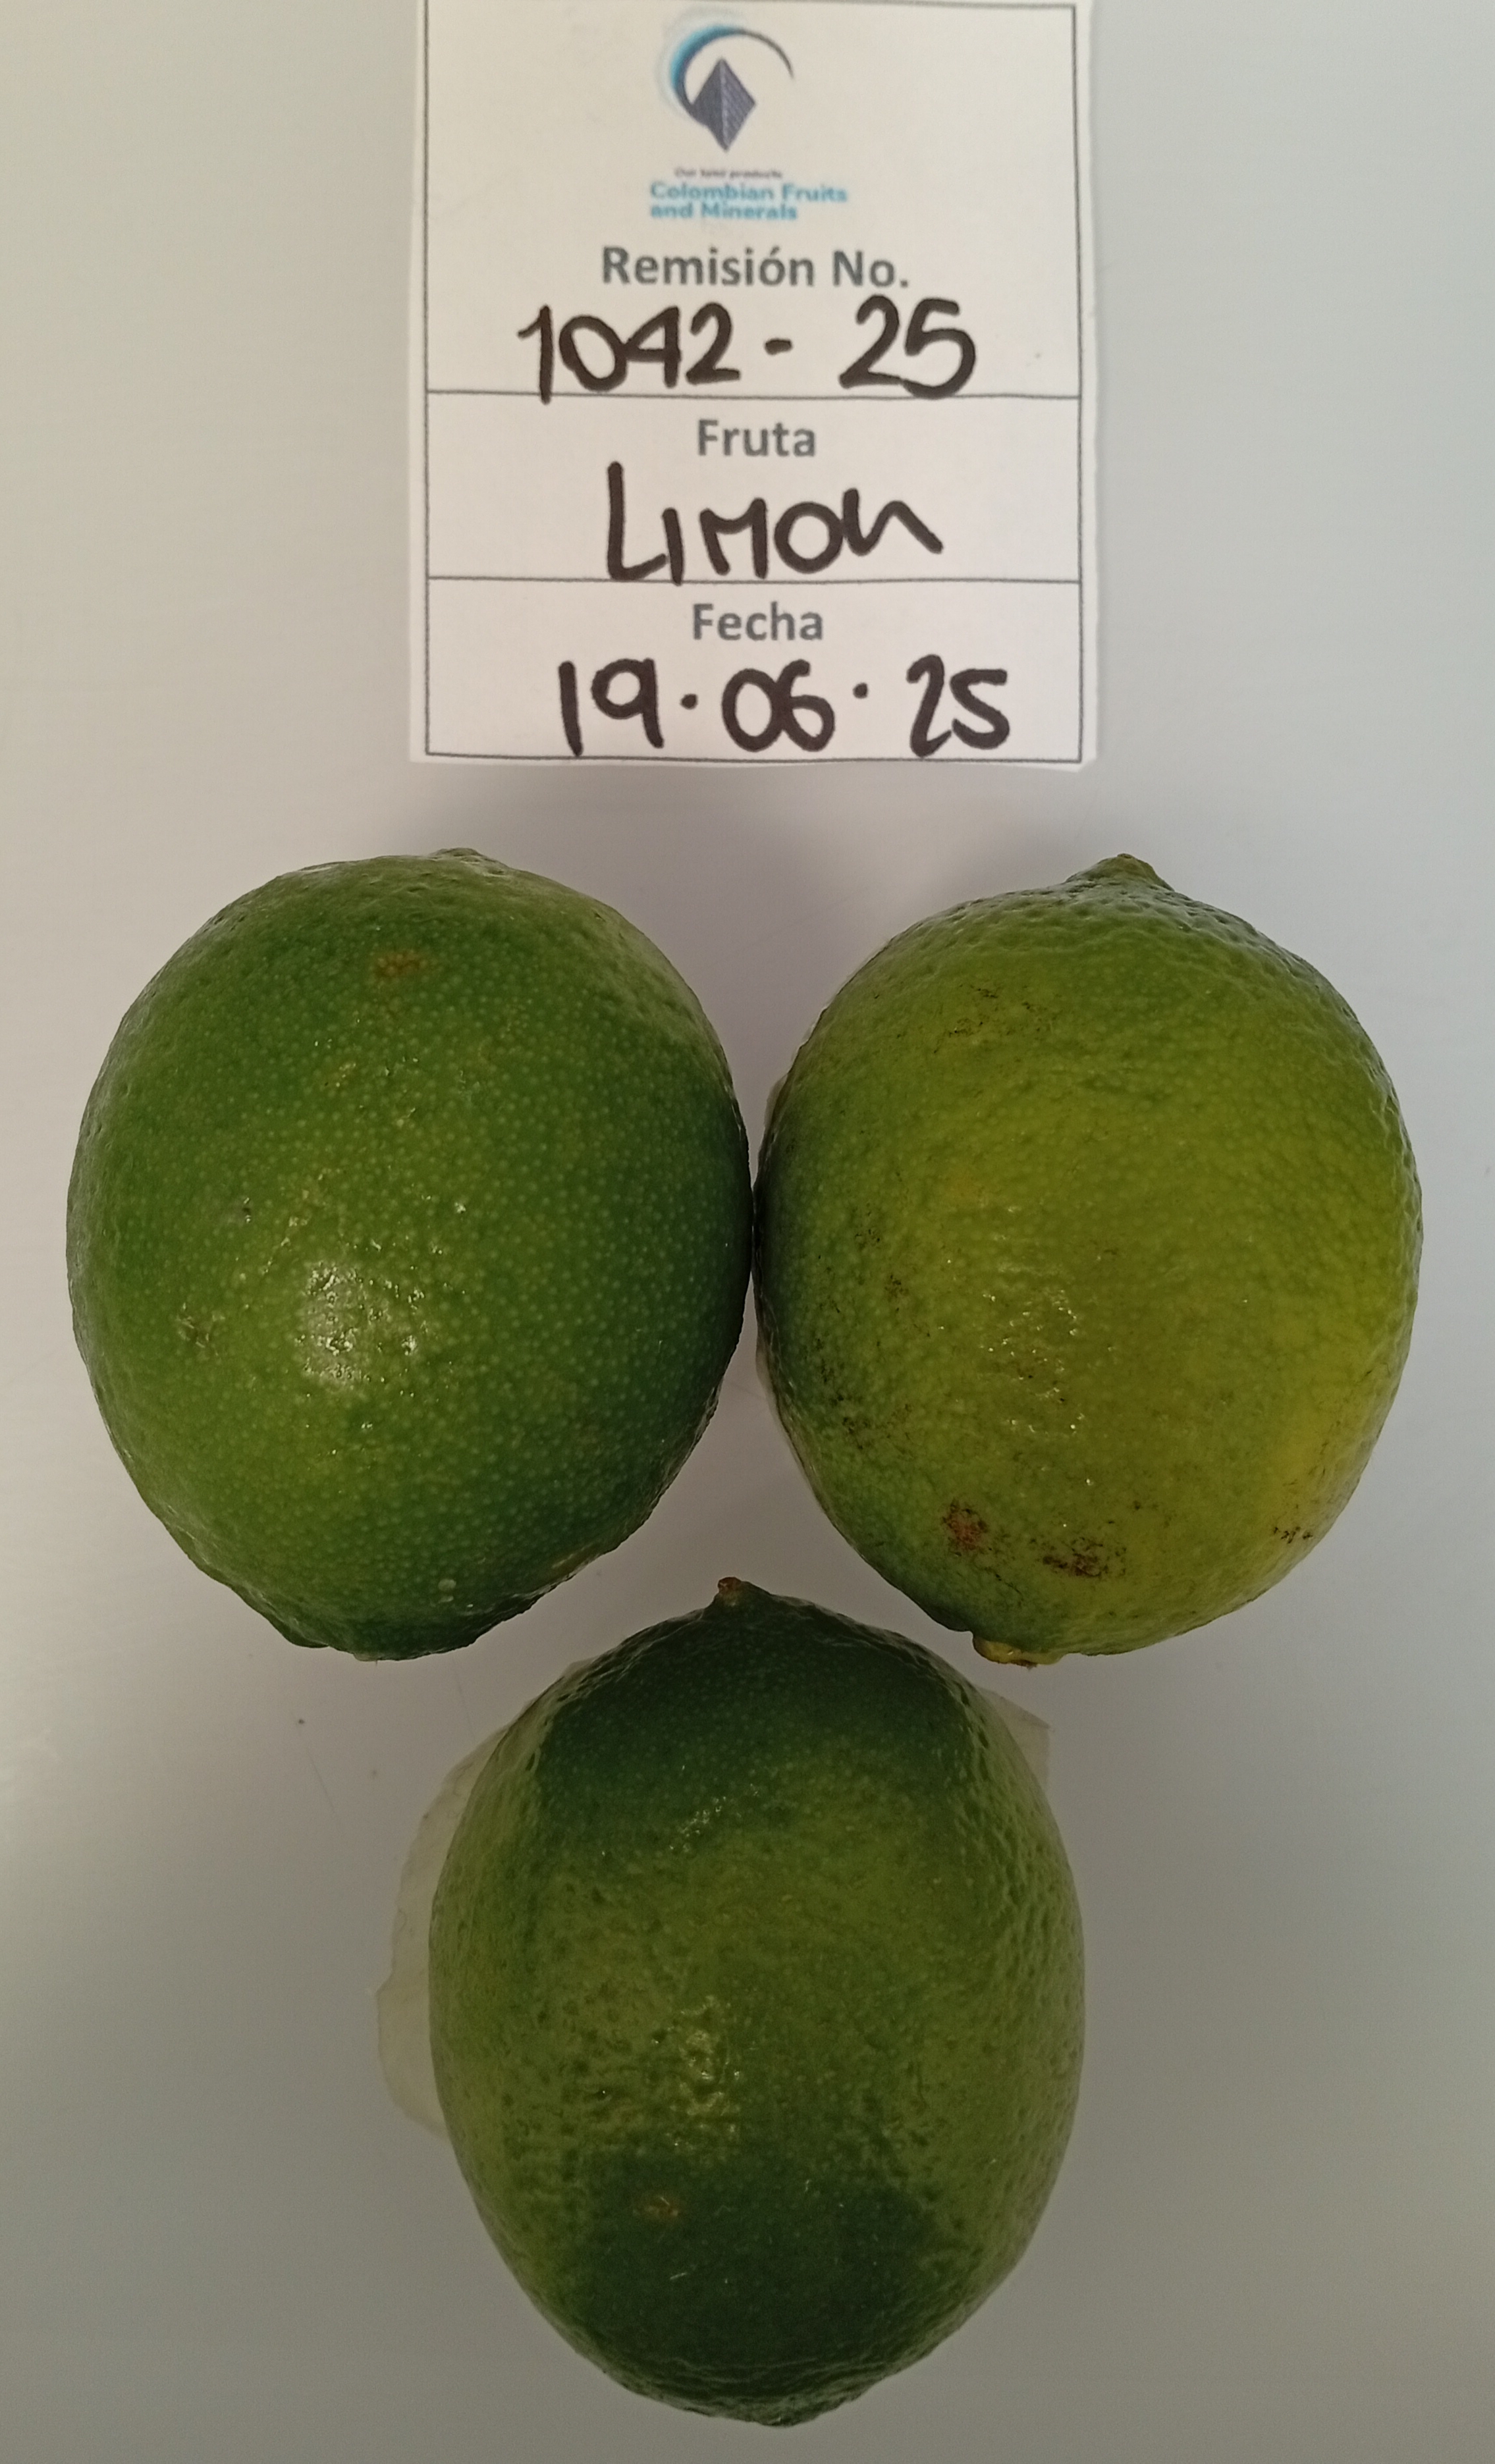 Our land products
Colombian Fruits
and Minerals
Remisión No.
1042 - 25
Fruta
LIMON
Fecha
19 · 06 · 25